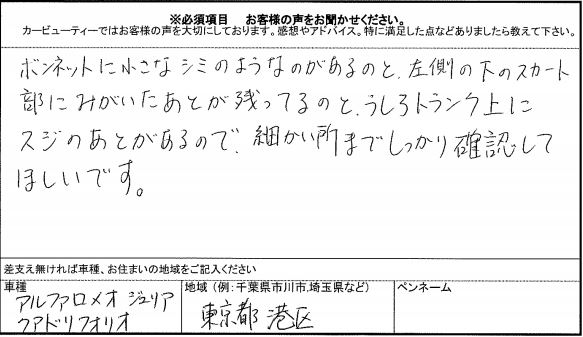 ※必須項目　お客様の声をお聞かせください。
カービューティーではお客様の声を大切にしております。感想やアドバイス。特に満足した点などありましたら教えて下さい。
ボンネットに小さなシミのようなのがあるのと、左側の下のスカート
部にみがいたあとが残ってるのと、うしろトランク上に
スジのあとがあるので、細かい所までしっかり確認して
ほしいです。
差支え無ければ車種、お住まいの地域をご記入ください
車種
アルファロメオ ジュリア
クアドリフォリオ
地域（例：千葉県市川市,埼玉県など）
東京都 港区
ペンネーム